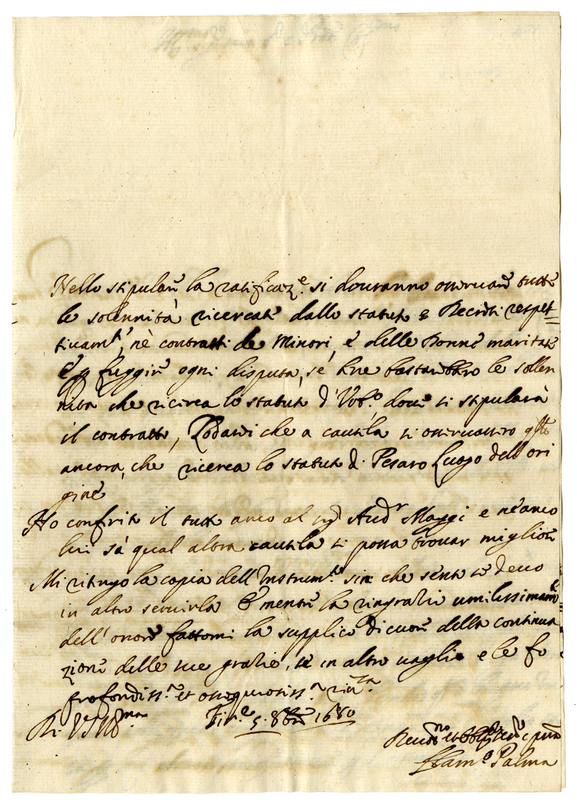 Nello stipulare la ratificaz.e si dovranno osservare tutte
le solennità ricercate dallo statuto e Recerti respet=
tivam.te, nè contratti de Minori, e delle Donne maritate
E p fuggire ogni disputa, se bene bastarebbero le sollen
nità che ricerca lo statuto d' dove si stipularà
il contratto, che a cautela si osservassero
ancora, che ricerca lo statuto di Pesaro Luogo dell'ori
gine
Ho conferito il tutto anco al Aud.r Maggi e ne anco
lui sà qual altra cautela si possa trovar migliore
Mi ritengo la copia dell'Instrum.to sin che sento se devo
in altro servirla E mentre la ringratio umilissimam.te
dell'onore fattomi la supplico di cuore della continua
zione delle sue gratie, se in altro vaglio e le fo
profondiss.a et ossequiosiss.a riv.za
Di V.S. Ill.ma Fir.e 5. 8bre 1680
Palma